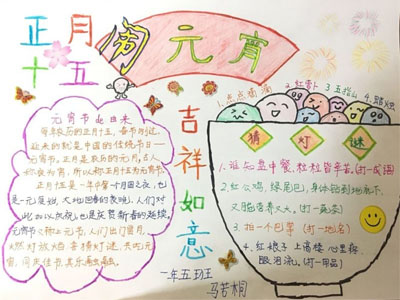 正月
十五
闹元宵
元宵节的由来
每年农历的正月十五,春节刚过,
迎来的就是中国的传统节日—
元宵节。正月是农历的元月,古人
称夜为宵,所以称正月十五为元宵节。
正月十五是一年中第一个月圆之夜,也
是一元复始,大地回春的夜晚,人们对
此加以庆祝,也是庆贺新春的延续。
元宵节又称上元节,人们出门赏月,
燃灯放焰,喜猜灯谜,共吃元
宵,同庆佳节,其乐融融。
吉祥如意
一年五班
马若桐
1.点点滴滴
2.红萝卜
3.五指山
4.蜡烛
猜灯谜
1.谁知盘中餐,粒粒皆辛苦。(打一成语)
2.红公鸡,绿尾巴,身体钻到地底下,
又甜营养又大。(打一蔬菜)
3.组一个巴掌(打一地名)
4.红娘子,上高楼,心里疼,
眼泪流。(打一用品)